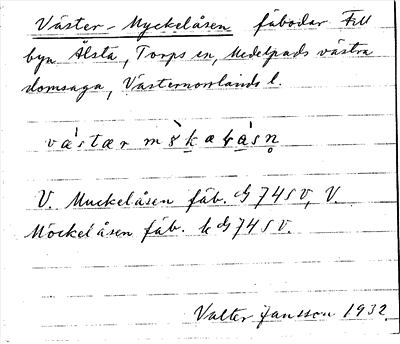 Väster-Myckelåsen fäbodar till
byn Älsta, Torps sn, Medelpads västra
domsaga, Västernorrlands l.
V. Muckelåsen fäb. 74 S V, V.
Möckelåsen fäb. 74 S V.
Valter Jansson 1932.